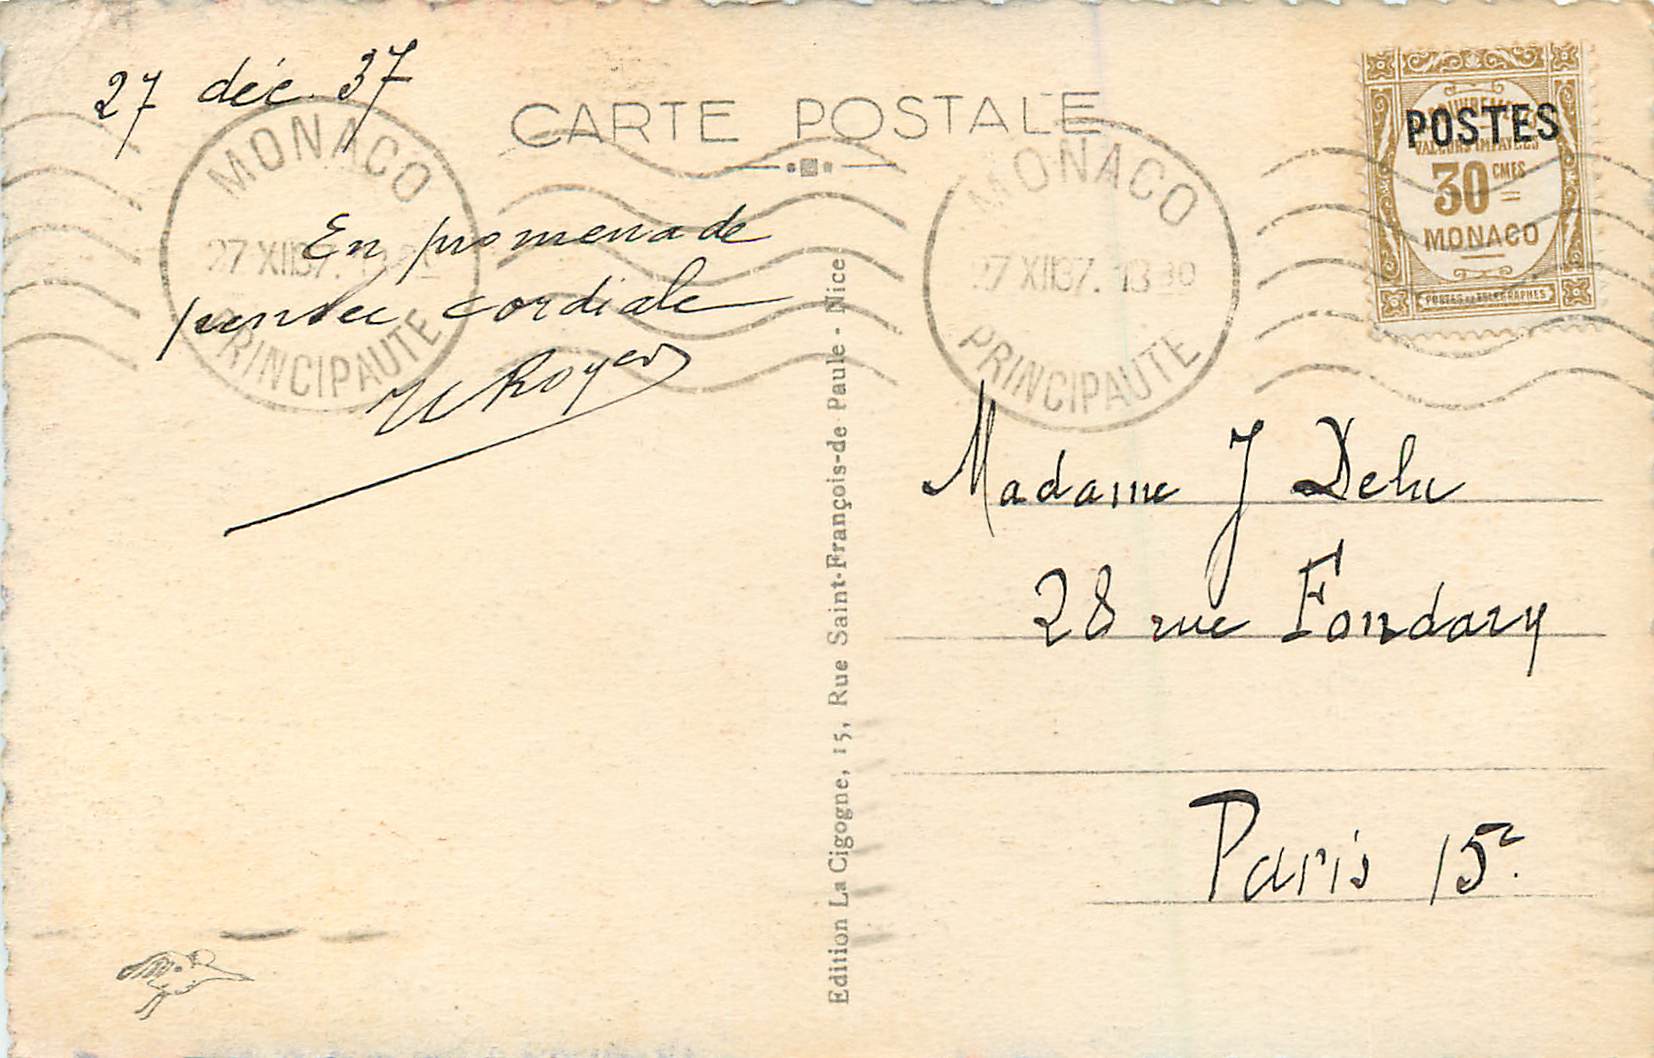 27 déc. 37
CARTE POSTALE
MONACO
27 XII 37. 13 30
PRINCIPAUTE
En promenade
pensée cordiale
Royer
MONACO
27 XII 37. 13 30
PRINCIPAUTE
POSTES
RECOUVREMENTS
VALEURS IMPAYÉES
30 CMES
MONACO
POSTES ET TÉLÉGRAPHES
Edition La Cigogne, 15, Rue Saint-François-de Paule - Nice
Madame J Delu
28 rue Fondary
Paris 15e.